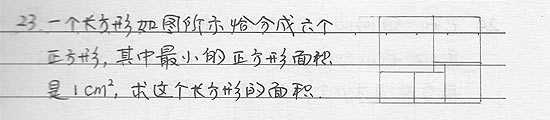 23. 一个长方形如图所示恰分成六个
正方形,其中最小的正方形面积
是1cm²,求这个长方形的面积.